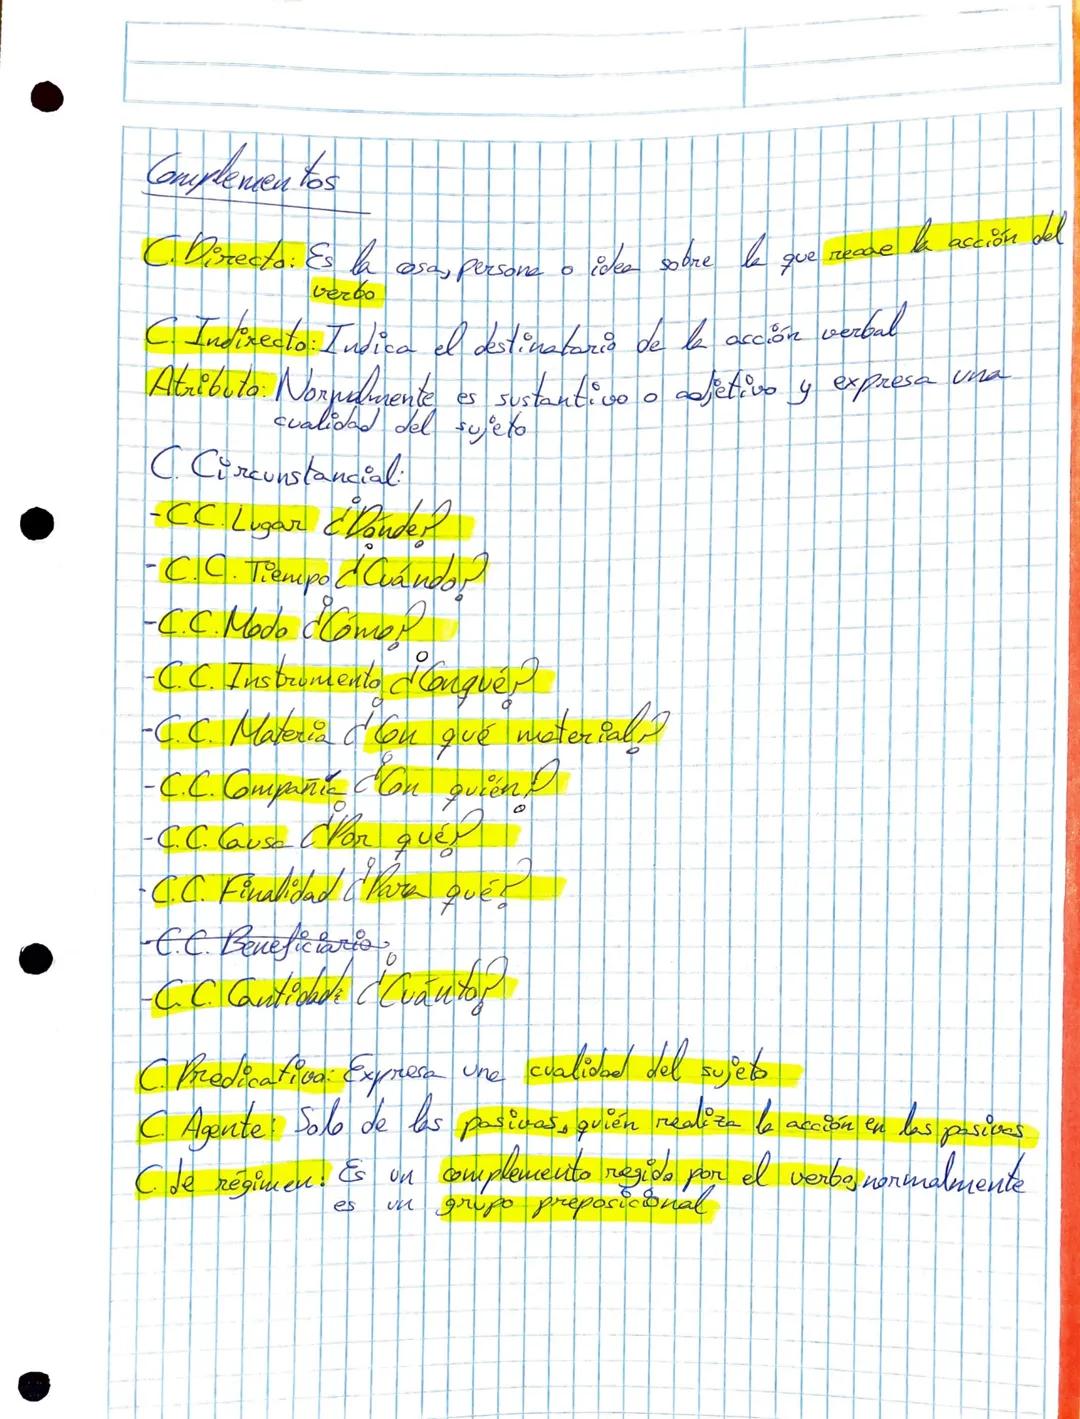 Complementos
C. Directo: Es la cosa, persona o idea sobre la que recae la acción del
verbo
C. Indirecto: Indica el destinatario de la acción verbal
Atributo: Normalmente es sustantivo o adjetivo y expresa una
cualidad del sujeto
C. Circunstancial:
-C.C. Lugar ¿Dónde?
-C.C. Tiempo ¿Cuándo?
-C.C. Modo ¿Cómo?
-C.C. Instrumento ¿Conqué?
-C.C. Materia ¿Con qué material?
-C.C. Compañía ¿Con quién?
-C.C. Causa ¿Por qué?
-C.C. Finalidad ¿Para qué?
-C.C. Beneficiario
-C.C. Cantidad: ¿Cuánto?
C. Predicativo: Expresa una cualidad del sujeto
C. Agente: Solo de las pasivas, quién realiza la acción en las pasivas
C. de régimen: Es un complemento regido por el verbo, normalmente
es un grupo preposicional